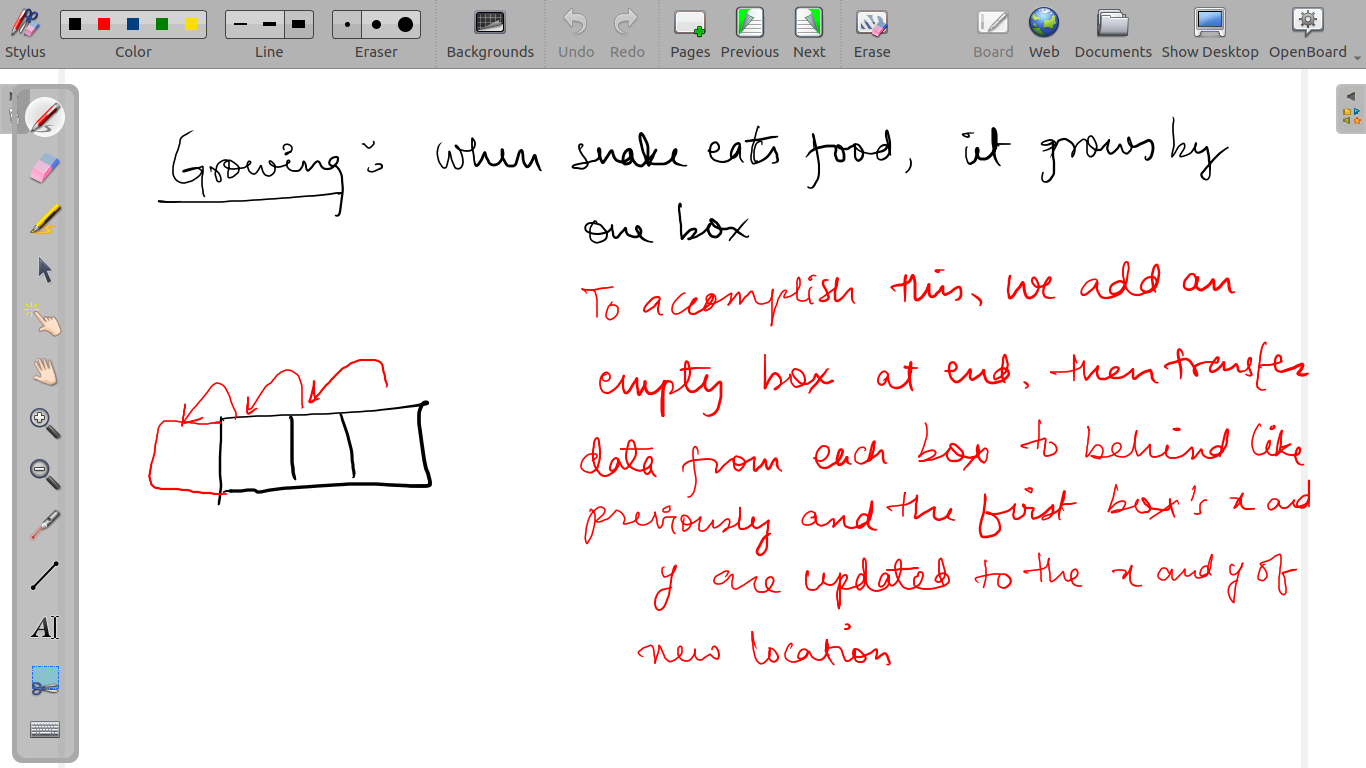 Stylus Color Line Eraser Backgrounds Undo Redo Pages Previous Next Erase Board Web Documents Show Desktop OpenBoard
Growing: when snake eats food, it grows by
one box
To accomplish this, we add an
empty box at end. then transfer
data from each box to behind like
previously and the first box's x and
y are updated to the x and y of
new location